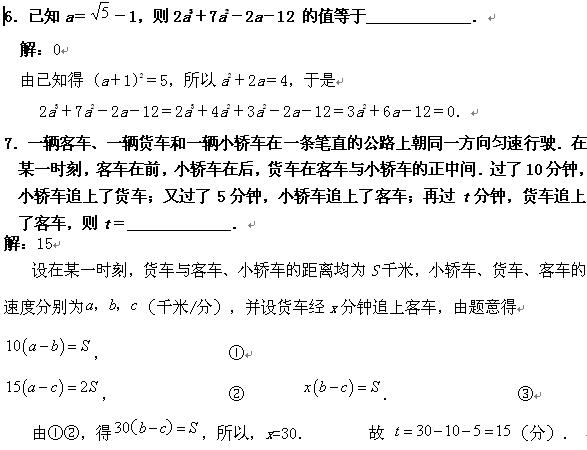 6. 已知 a= √5 -1，则 2a³+7a²-2a-12 的值等于____________.
解: 0
由已知得 (a+1)²=5，所以 a²+2a=4，于是
2a³+7a²-2a-12=2a³+4a²+3a²-2a-12=3a²+6a-12=0.
7. 一辆客车、一辆货车和一辆小轿车在一条笔直的公路上朝同一方向匀速行驶. 在
某一时刻，客车在前，小轿车在后，货车在客车与小轿车的正中间. 过了 10 分钟，
小轿车追上了货车；又过了 5 分钟，小轿车追上了客车；再过 t 分钟，货车追上
了客车，则 t=____________.
解: 15
设在某一时刻，货车与客车、小轿车的距离均为 S 千米，小轿车、货车、客车的
速度分别为 a，b，c（千米/分），并设货车经 x 分钟追上客车，由题意得
10(a-b)=S， ①
15(a-c)=2S， ② x(b-c)=S. ③
由①②，得 30(b-c)=S，所以，x=30. 故 t=30-10-5=15（分）.